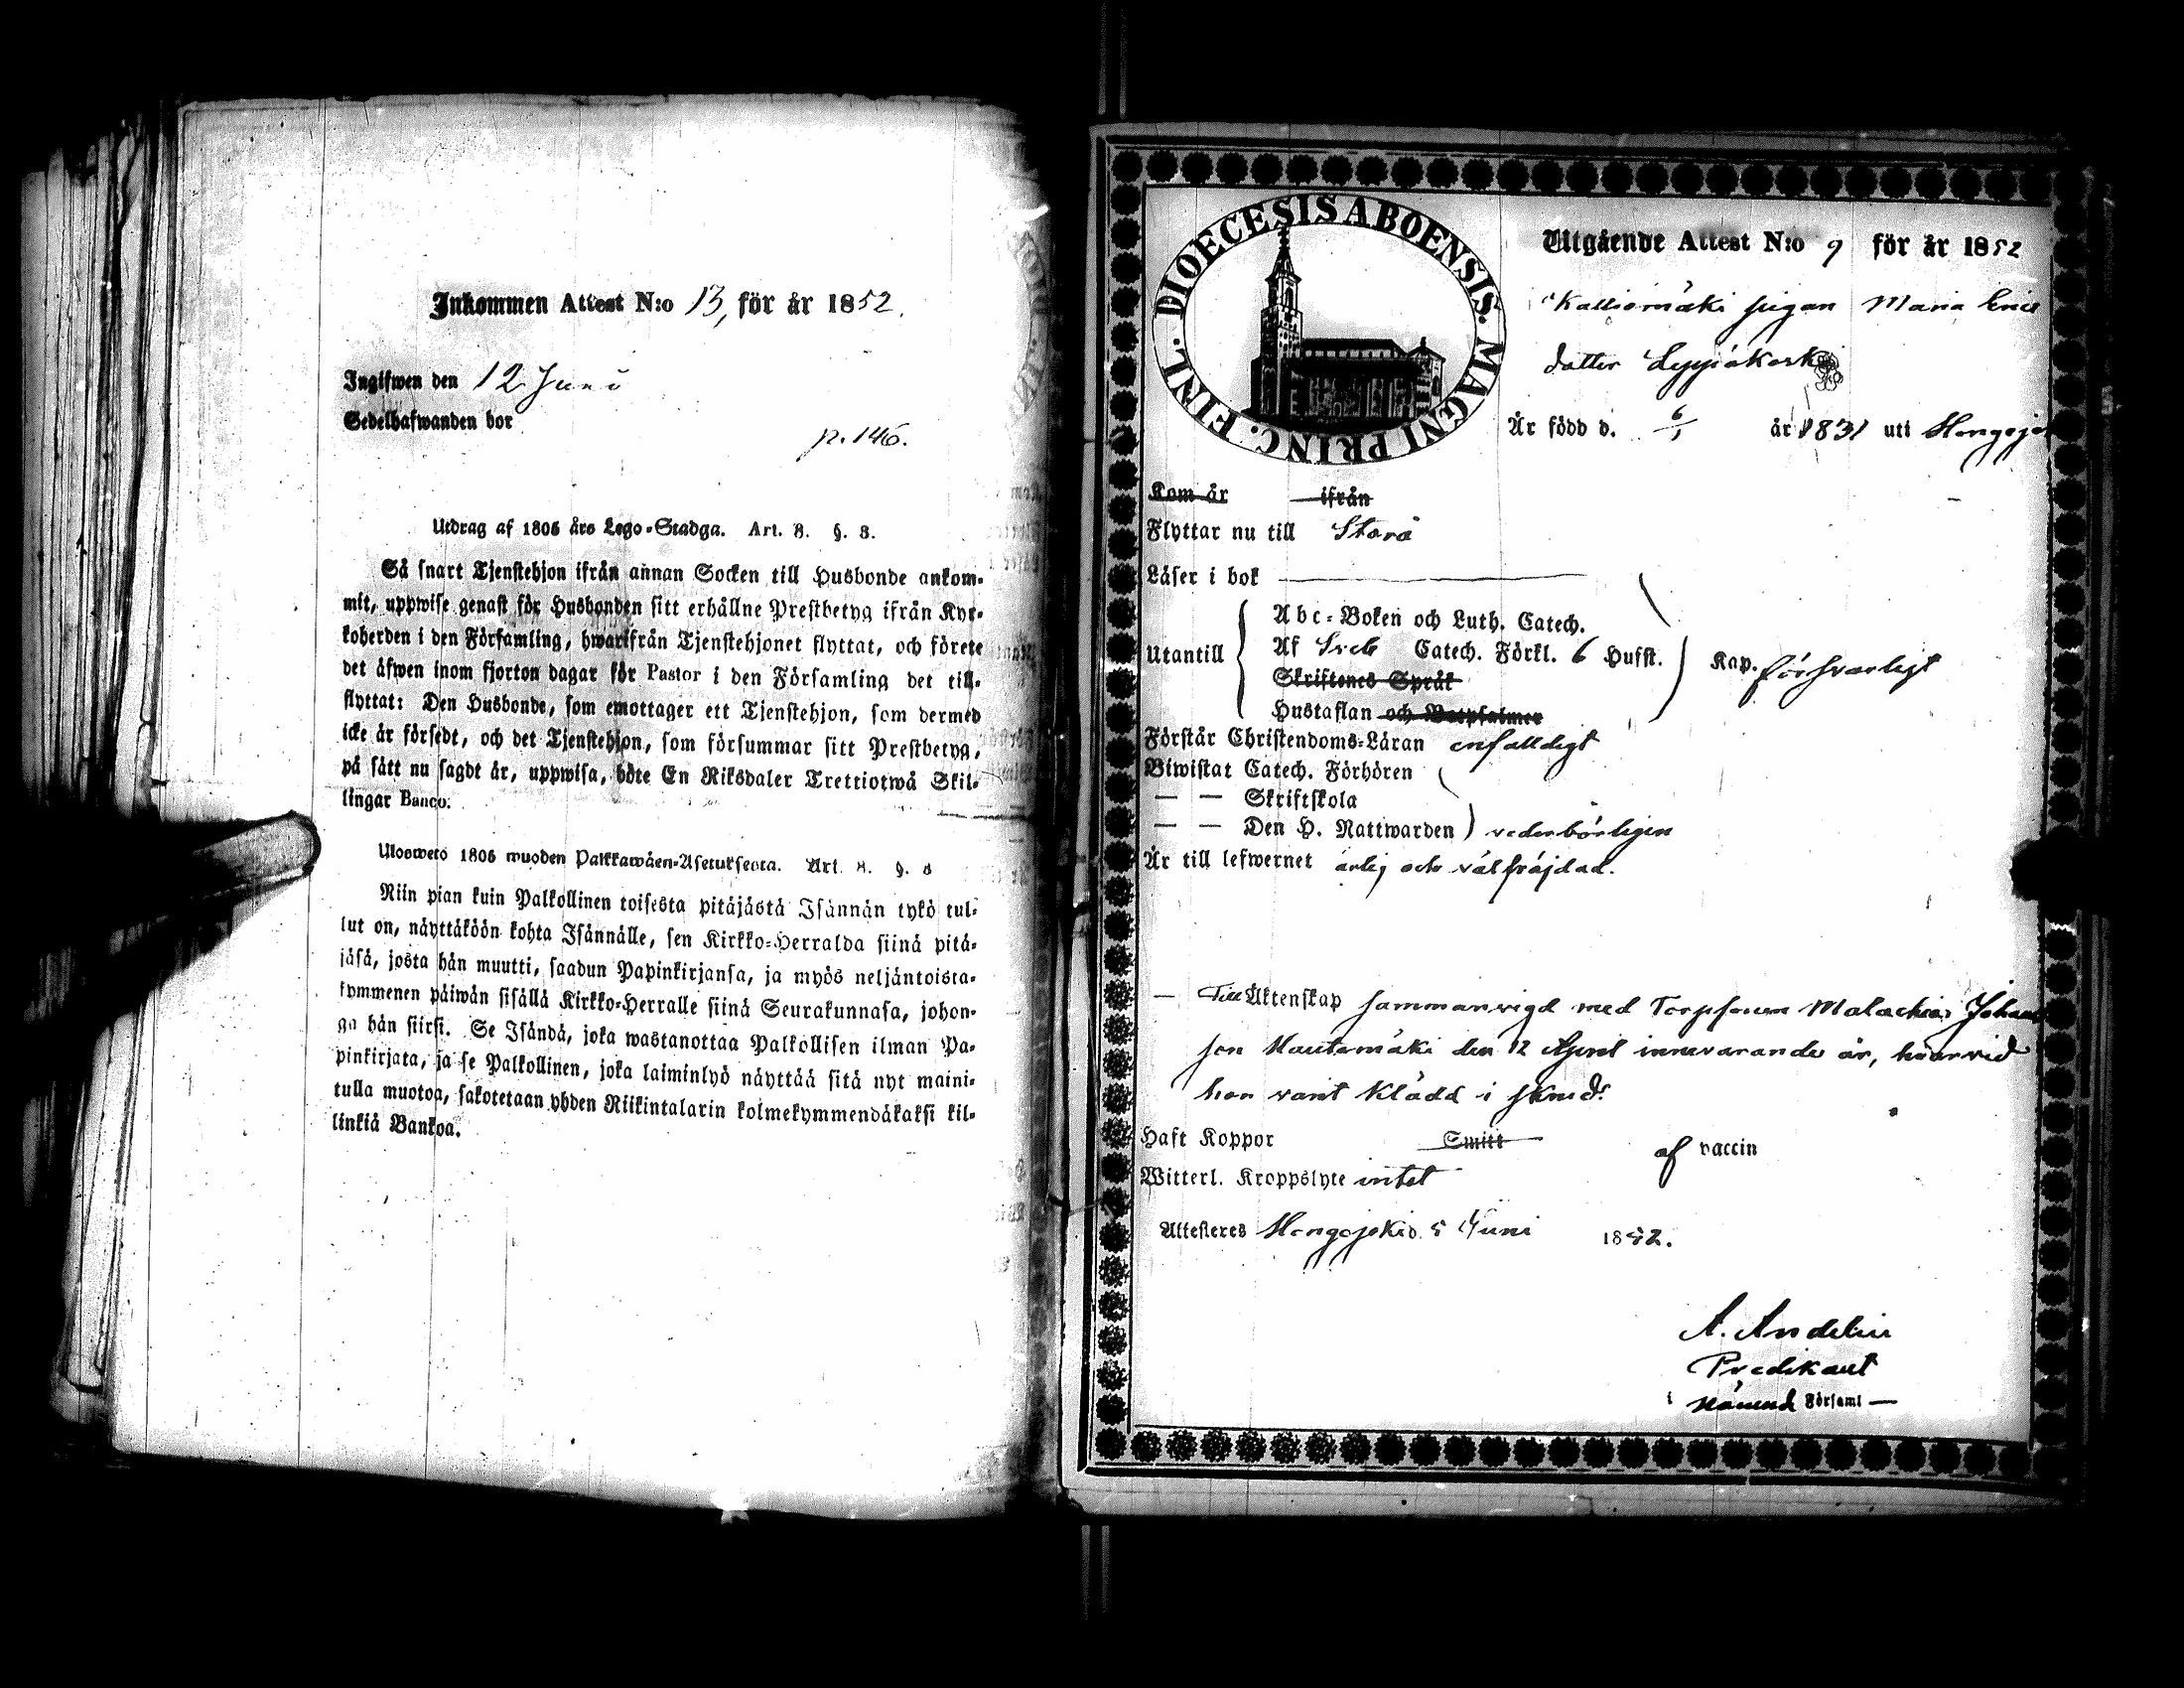 Inkommen Attest N:o 13, för år 1852.
Ingifwen den 12 Juni
Sedelhafwanden bor
p. 146.
Utdrag af 1805 års Lego-Stadga. Art. 8. §. 8.
Så snart Tjenstehjon ifrån annan Socken till Husbonde ankom-
mit, uppwise genast för Husbonden sitt erhållne Prestbetyg ifrån Kyr-
koherden i den Församling, hwarifrån Tjenstehjonet flyttat, och förete
det äfwen inom fjorton dagar för Pastor i den Församling det till-
flyttat: Den Husbonde, som emottager ett Tjenstehjon, som dermed
icke är försedt, och det Tjenstehjon, som försummar sitt Prestbetyg,
på sätt nu sagdt är, uppwisa, böte En Riksdaler Trettiotwå Skil-
lingar Banco.
Uloswetо 1805 wuoden Palkkawäen-Asetuksesta. Art. 8. §. 8
Niin pian kuin Palkollinen toisesta pitäjästä Isännän tykö tul-
lut on, näyttäköön kohta Isännälle, sen Kirkko-Herralda siinä pitä-
jäsä, josta hän muutti, saadun Papinkirjansa, ja myös neljäntoista-
kymmenen päiwän sisällä Kirkko-Herralle siinä Seurakunnasa, johon-
ga hän siirsi. Se Isändä, joka wastanottaa Palkollisen ilman Pa-
pinkirjata, ja se Palkollinen, joka laiminlyö näyttää sitä nyt maini-
tulla muotoa, sakotetaan yhden Riikintalarin kolmekymmendäkaksi kil-
linkiä Bankoa.
DIOECESIS ABOENSIS. MAGNI PRINC. FINL.
Utgående Attest N:o 9 för år 1852
Kalliomäki pigan Maria Erics
dotter Leppäkoski
Är född d. 6/1 år 1831 uti
Kom år ifrån
Flyttar nu till Storå
Läser i bok
Abc-Boken och Luth. Catech.
Utantill Af Sveb Catech. Förkl. 6 Hufst. Kap. försvarligt
Skriftenes Språk
Hustaflan och Botpsalmer
Förstår Christendoms-Läran enfaldigt
Biwistat Catech. Förhören
— — Skriftskola
— — Den H. Nattwarden vederbörligen
Är till lefwernet ärlig och välfräjdad.
— Till Äktenskap sammanvigd med Torpparen Malachias Johans
son Hautamäki den 12 April innevarande år, hvarvid
hon varit klädd i skrud.
Haft Koppor Smitt af vaccin
Witterl. Kroppslyte intet
Attesteres Hongojoki d. 5 Juni 1852.
A. Andelin
Predikant
i nämnd Församl —